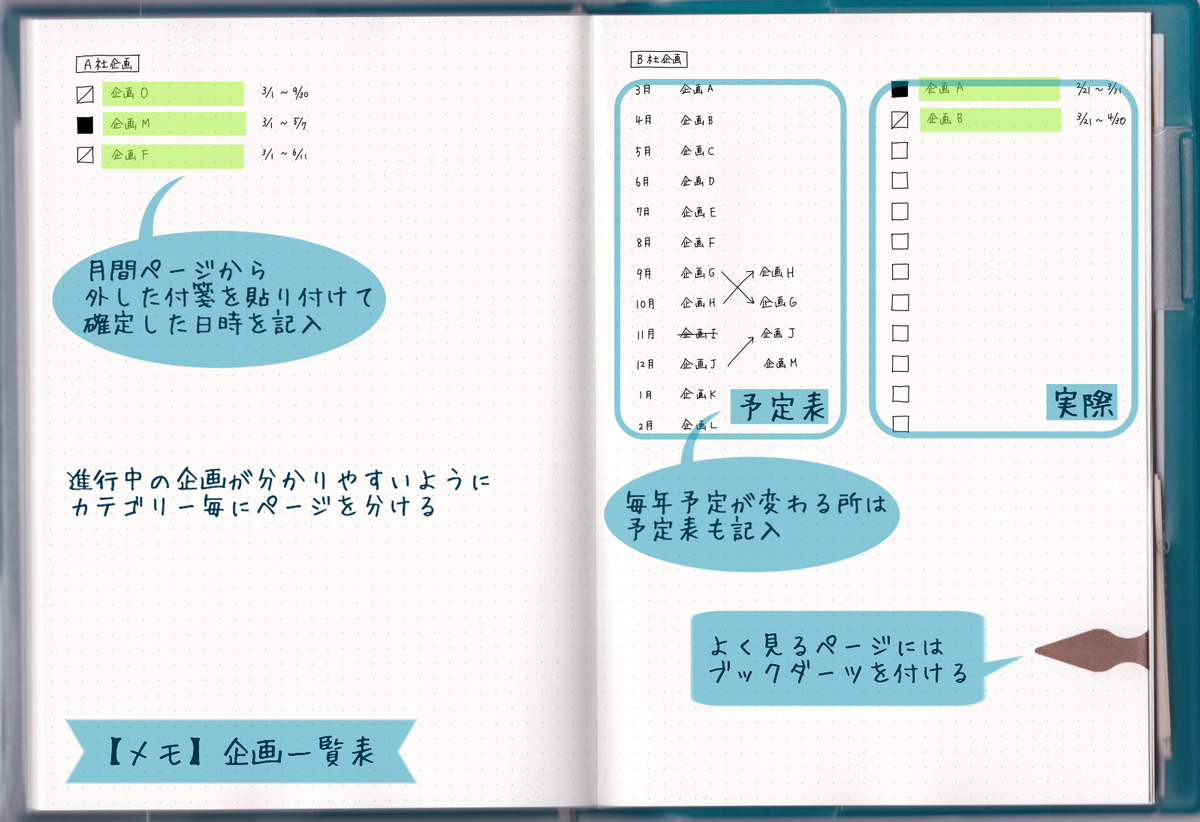 A社企画
企画O 3/1 ~ 9/30
企画M 3/1 ~ 5/7
企画F 3/1 ~ 6/11
月間ページから
外した付箋を貼り付けて
確定した日時を記入
進行中の企画が分かりやすいように
カテゴリー毎にページを分ける
【メモ】企画一覧表
B社企画
3月 企画A
4月 企画B
5月 企画C
6月 企画D
7月 企画E
8月 企画F
9月 企画G 企画H
10月 企画H 企画G
11月 企画I 企画J
12月 企画J 企画M
1月 企画K
2月 企画L
予定表
企画A 2/21 ~ 3/31
企画B 3/21 ~ 4/30
実際
毎年予定が変わる所は
予定表も記入
よく見るページには
ブックダーツを付ける